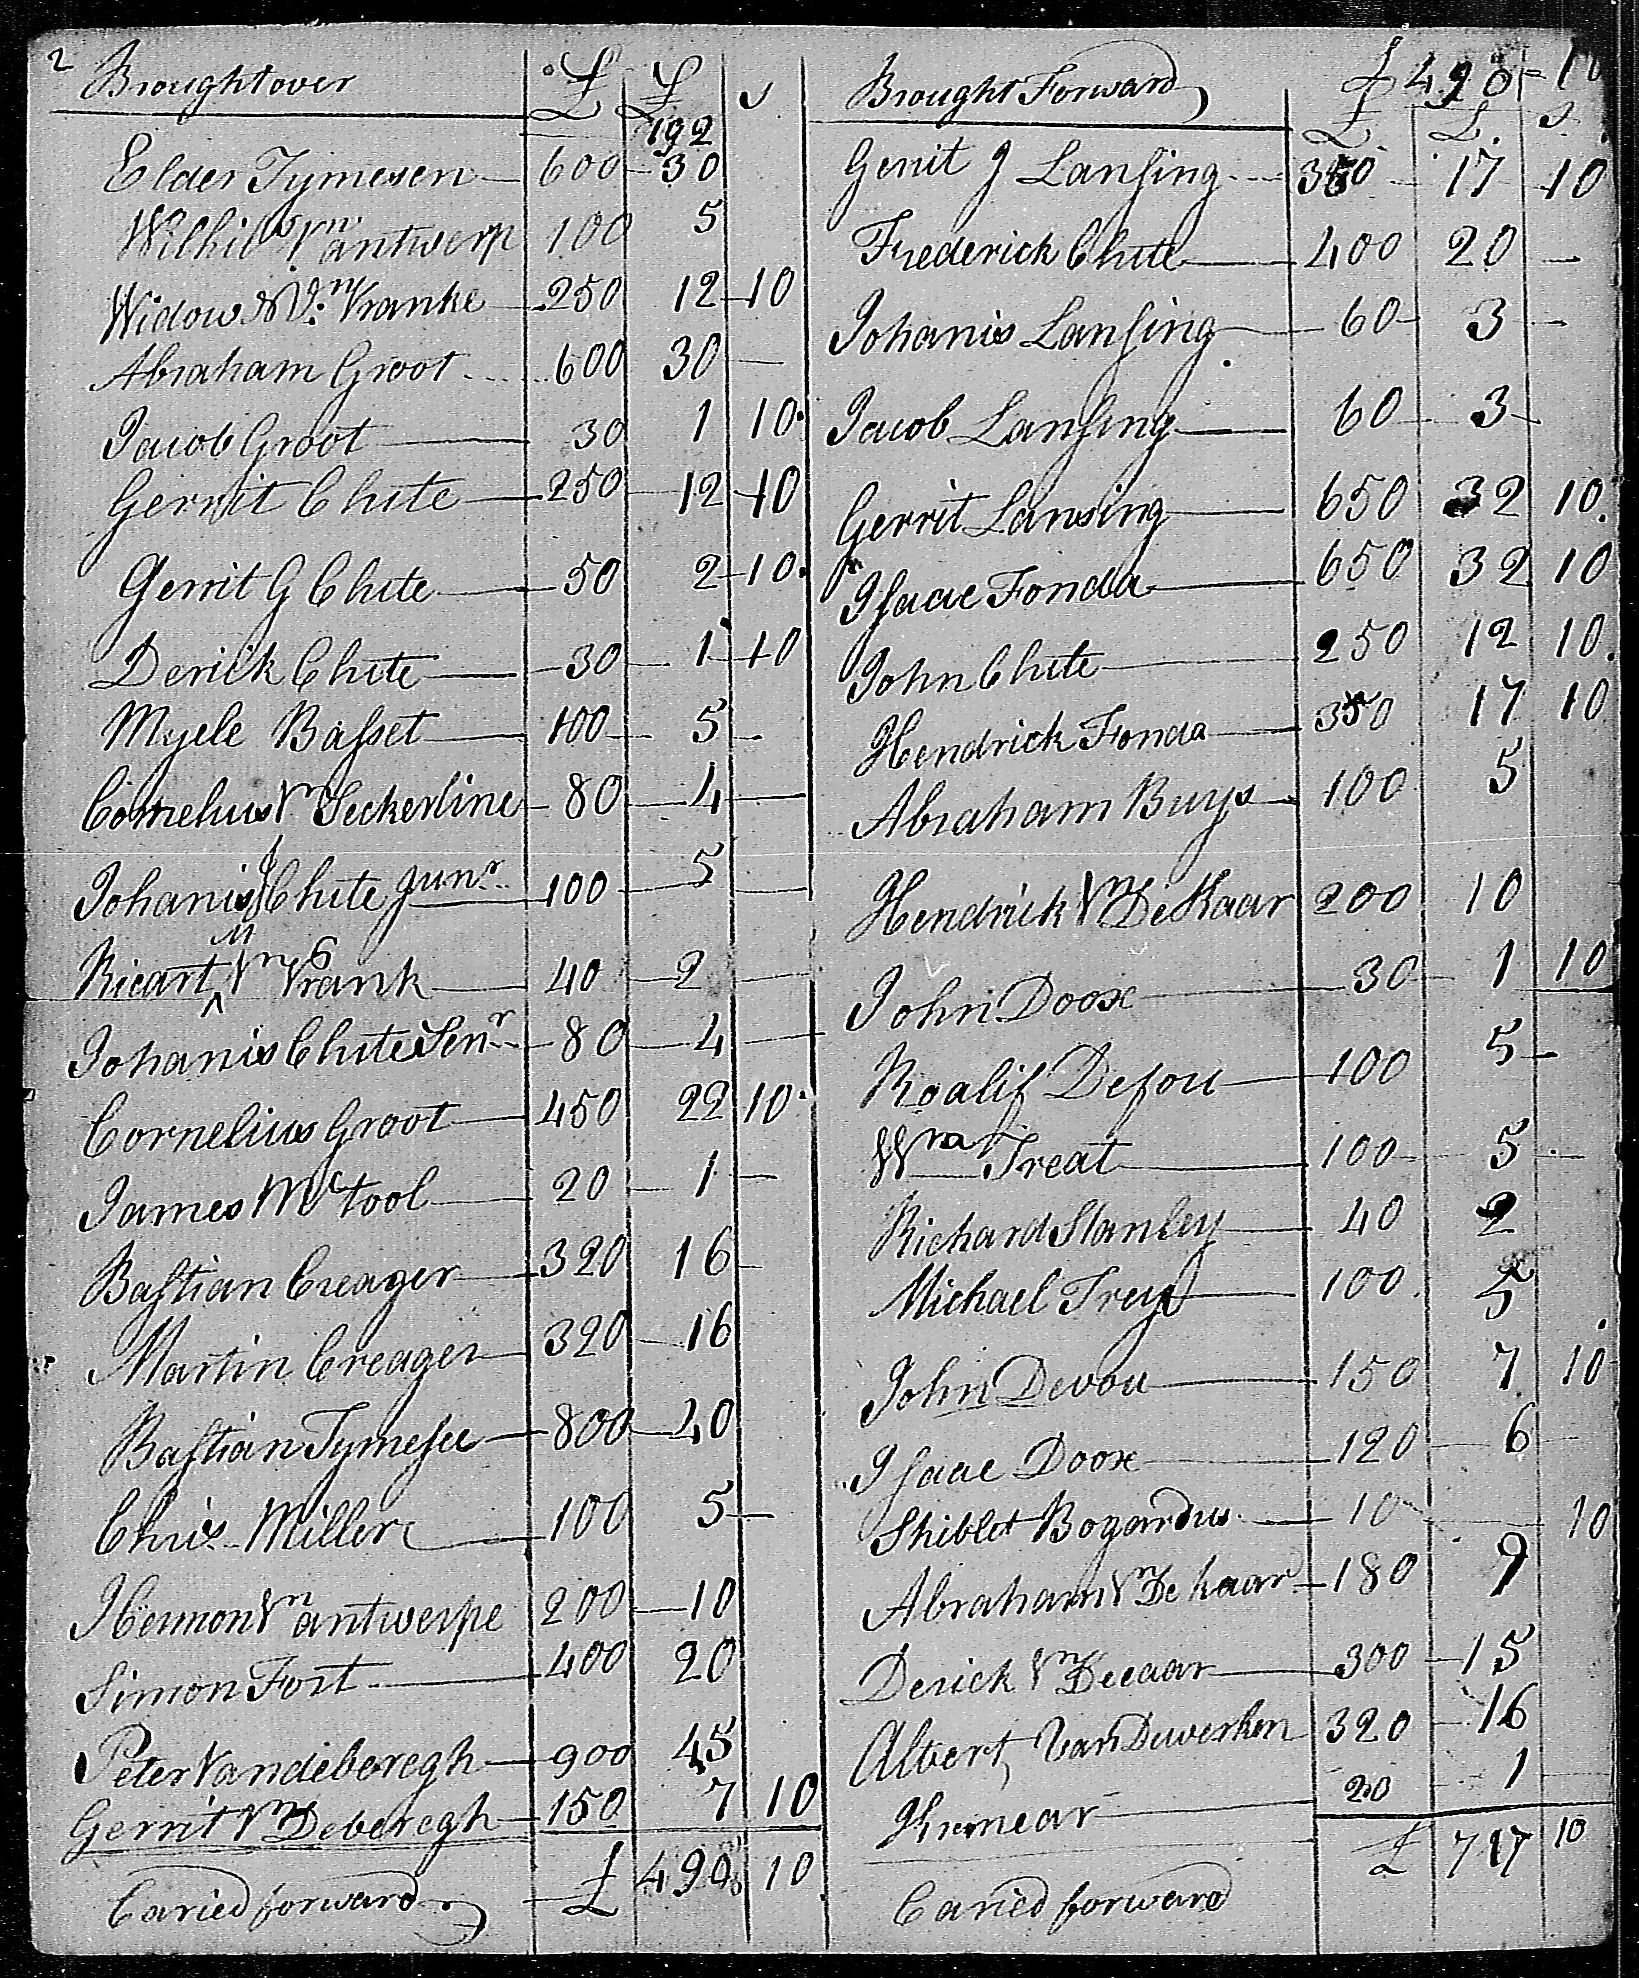 2 Brought over £ £ s
192
Elder Tymesen 600 30
Wilhils Vn antwerp 100 5
Widow N Vn Vranke 250 12 10
Abraham Groot 600 30 —
Jacob Groot 30 1 10
Gerrit Chite 250 12 10
Gerrit G Chite 50 2 10
Derick Chite 30 1 10
Myele Basset 100 5 —
Cornelius Vn Seckerline 80 4 —
Johanis J Chite Junr 100 5 —
Ricart M Vn Vrank 40 2 —
Johanis Chite Senr 80 4 —
Cornelius Groot 450 22 10
James Mctool 20 1 —
Bastian Creager 320 16 —
Martin Creager 320 16
Bastian Tymese 800 40
Chris Miller 100 5 —
Hermon Vn antwerpe 200 10
Simon Fort 400 20
Peter Vandeberegh 900 45
Gerrit Vn Deberegh 150 7 10
Caried forward £ 490 10
Brought Forward £ 490 10
£ £ s
Gerrit J Lansing 350 17 10
Frederick Chite 400 20 —
Johanis Lansing 60 3 —
Jacob Lansing 60 3 —
Gerrit Lansing 650 32 10
Isaac Fonda 650 32 10
John Chite 250 12 10
Hendrick Fonda 350 17 10
Abraham Buys 100 5
Hendrick Vn DeKaar 200 10
John Doox 30 1 10
Roalif Defou 100 5 —
Wm Treat 100 5 —
Richard Stanley 40 2
Michael Frey 100 5
John Devou 150 7 10
Isaac Doox 120 6 —
Shiblet Bogardus 10 10
Abraham Vn De kaar 180 9
Derick Vn Decaar 300 15
Albert Van Duwerken 320 16
20 1
£ 717 10
Caried forward